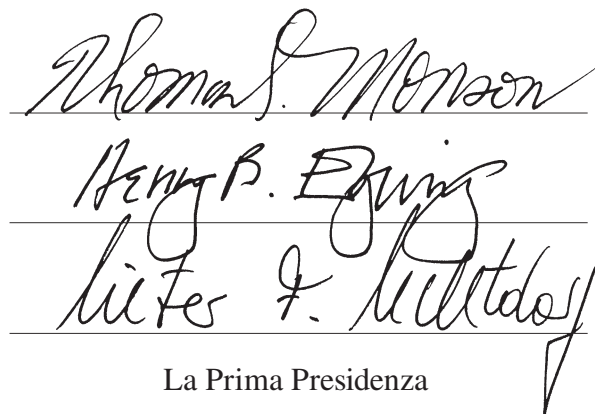 Thomas S. Monson
Henry B. Eyring
Dieter F. Uchtdorf
La Prima Presidenza